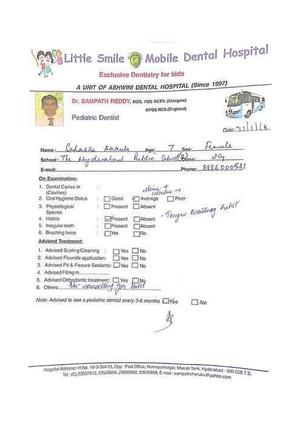 Little Smile Mobile Dental Hospital
Exclusive Dentistry for kids
A UNIT OF ASHWINI DENTAL HOSPITAL (Since 1997)
Dr. SAMPATH REDDY, MDS, FDS RCPS (Glasgow)
MFDS RCS (England)
Pediatric Dentist
Date:
Name: Age: 7 Sex: Female
School: The Hyderabad Public School
E-mail: Phone:
On Examination:
1. Dental Caries in (Cavities)
2. Oral Hygiene Status Good Average Poor
3. Physiological Spaces Present Absent
4. Habits Present Absent - Tongue thrusting habit
5. Irregular teeth Present Absent
6. Brushing twice Yes No
Advised Treatment:
1. Advised Scaling/Cleaning Yes No
2. Advised Flouride application: Yes No
3. Advised Pit & Fissure Sealants: Yes No
4. Advised Filling in
5. Advised Orthodontic treatment: Yes No
6. Others: counselling for habit
Note: Advised to see a pediatric dentist every 3-6 months Yes No
Hospital Address: H.No. Opp. Post Office, Humayunnagar, Masab Tank, Hyderabad - 500 028 T.S.